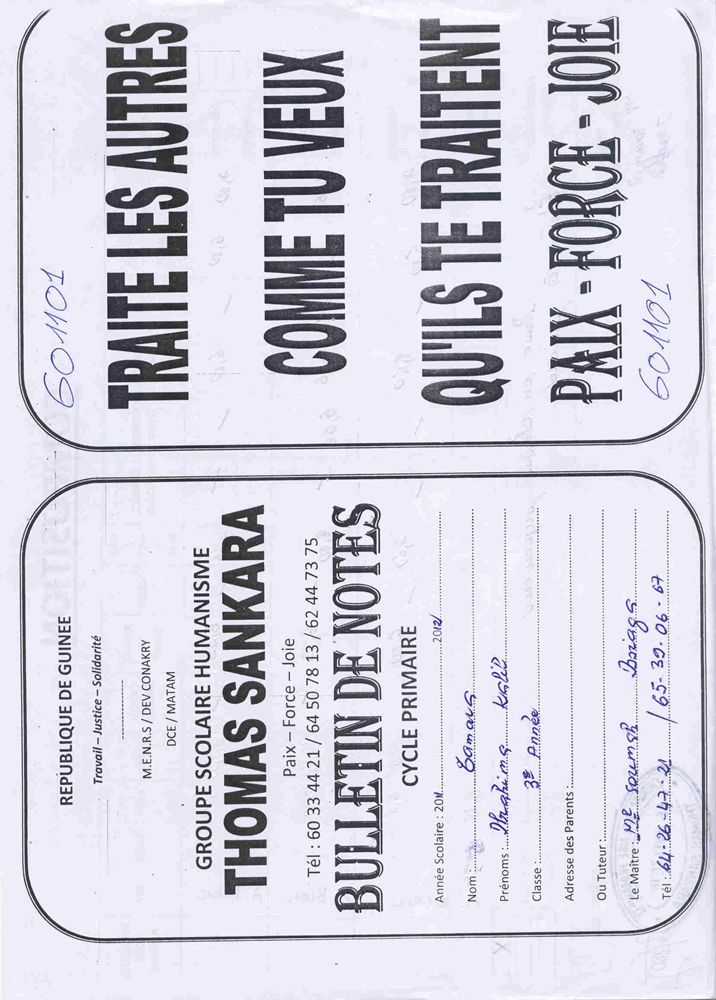 601101
TRAITE LES AUTRES
COMME TU VEUX
QU'ILS TE TRAITENT
PAIX - FORCE - JOIE
601101
REPUBLIQUE DE GUINEE
Travail – Justice – Solidarité
M.E.N.R.S / DEV CONAKRY
DCE / MATAM
GROUPE SCOLAIRE HUMANISME
THOMAS SANKARA
Paix – Force – Joie
Tél : 60 33 44 21 / 64 50 78 13 / 62 44 73 75
BULLETIN DE NOTES
CYCLE PRIMAIRE
Année Scolaire : 2011 2012/
Nom : Camara
Prénoms : Ibrahima Kalil
Classe : 3e Année
Adresse des Parents :
Ou Tuteur :
Le Maître : Me Soumah
Tél : 64-26-47-21 / 65-30-06-67